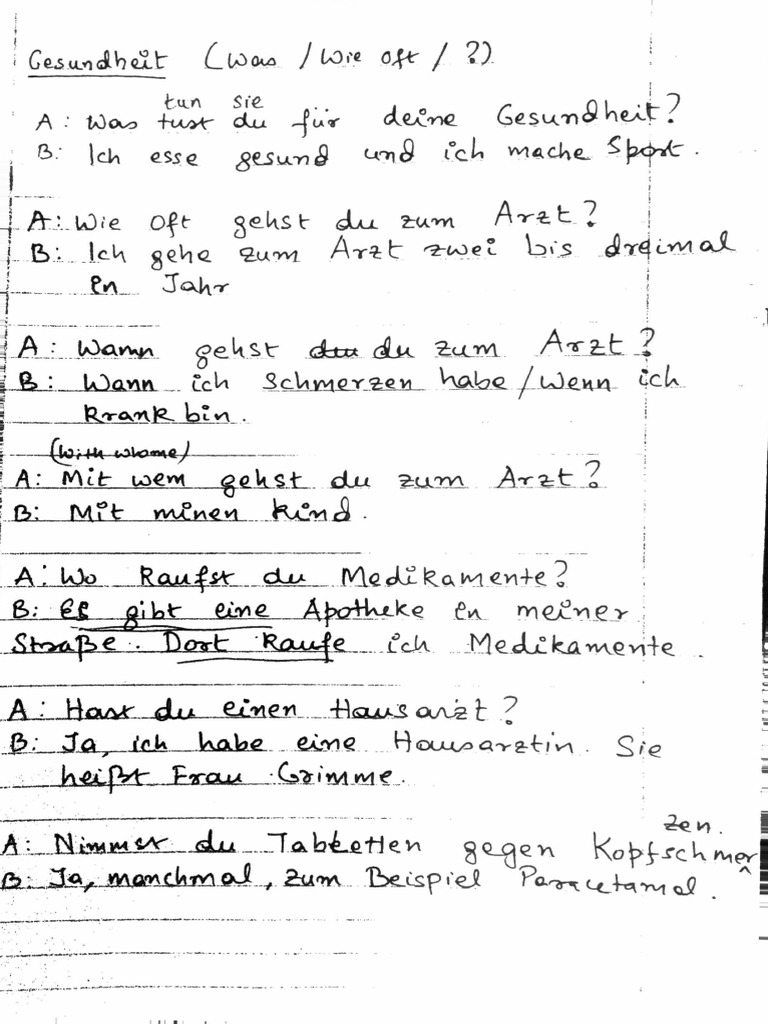 Gesundheit (Was / Wie oft / ?)
tun sie
A: Was tust du für deine Gesundheit?
B: Ich esse gesund und ich mache Sport.
A: Wie oft gehst du zum Arzt?
B: Ich gehe zum Arzt zwei bis dreimal
in Jahr
A: Wann gehst du zum Arzt?
B: Wann ich Schmerzen habe / Wenn ich
krank bin.
(With whome)
A: Mit wem gehst du zum Arzt?
B: Mit minen Kind.
A: Wo kaufst du Medikamente?
B: Es gibt eine Apotheke in meiner
Straße. Dort kaufe ich Medikamente.
A: Hast du einen Hausarzt?
B: Ja, ich habe eine Hausarztin. Sie
heißt Frau Grimme.
zen.
A: Nimmst du Tabletten gegen Kopfschmer
B: Ja, manchmal, zum Beispiel Paracetamol.